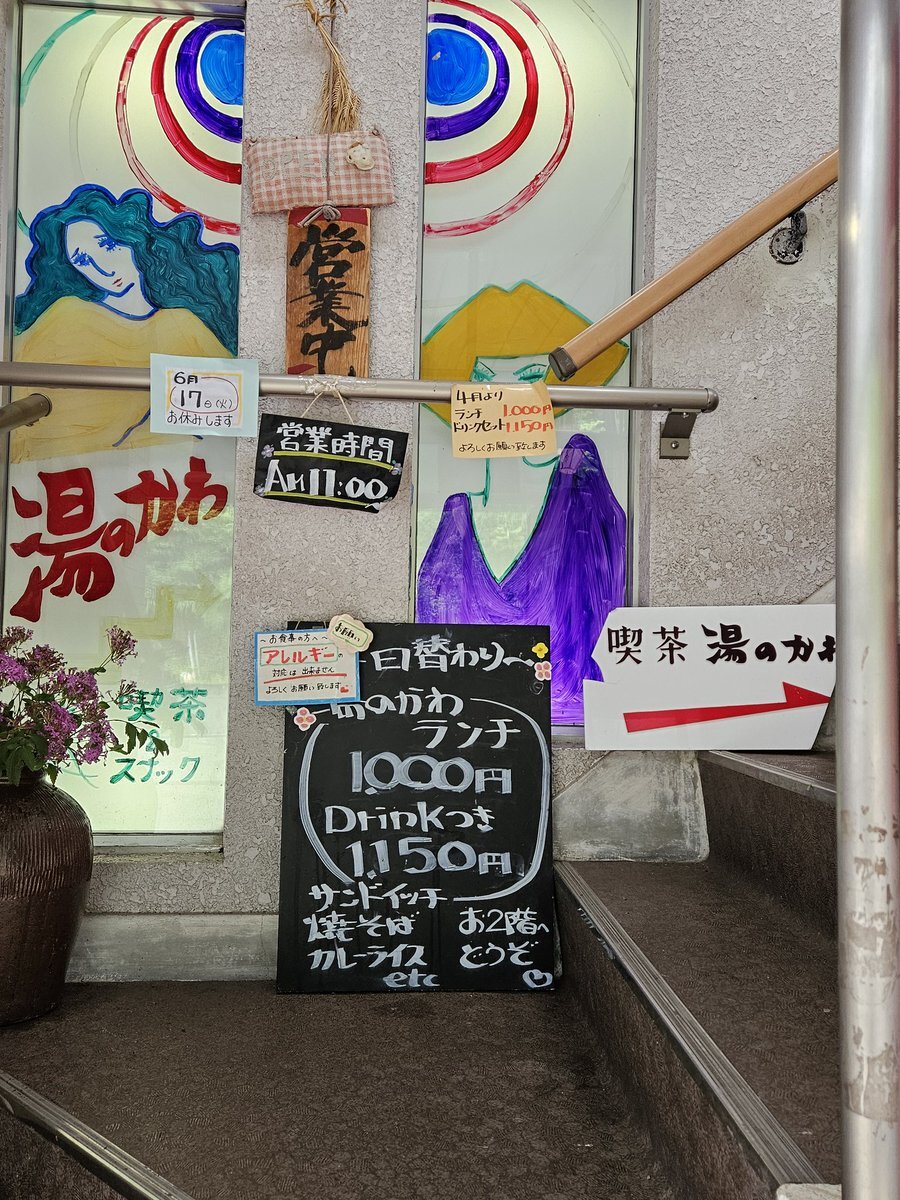 OPEN
営業中
6月
17日(火)
お休みします
営業時間
AM11:00
4月より
ランチ 1,000円
ドリンクセット 1,150円
よろしくお願い致します
湯のかわ
喫茶
&
スナック
～お食事の方へ～
お願い
アレルギーの
対応は出来ません
よろしくお願い致します
日替わり～
湯のかわ
ランチ
1,000円
Drinkつき
1,150円
サンドイッチ
焼そば
カレーライス
etc
お2階へ
どうぞ
喫茶 湯のかわ